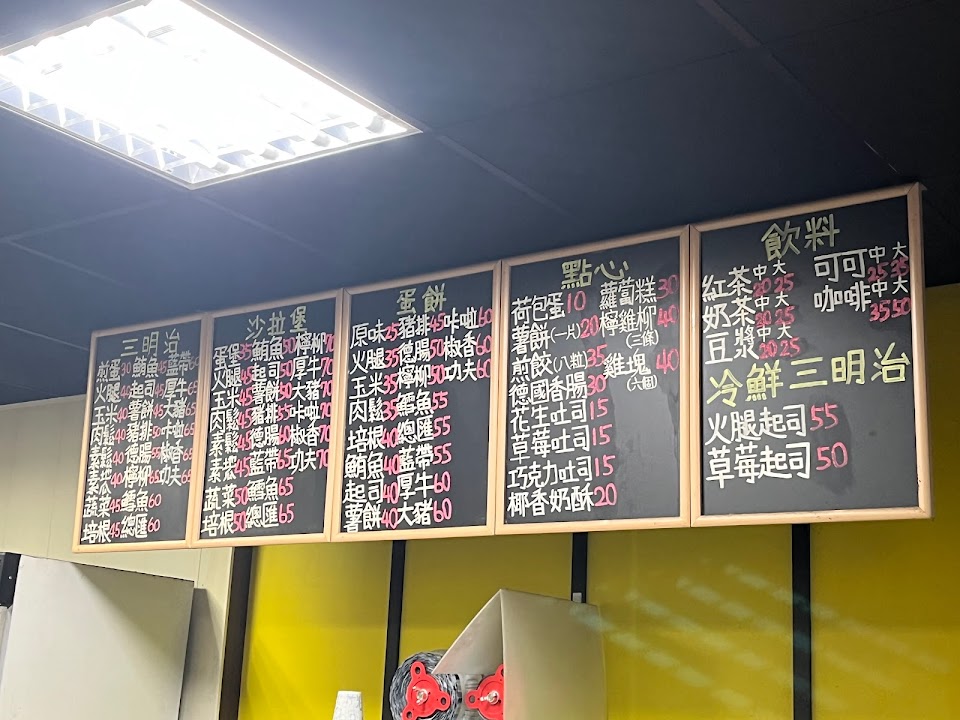 三明治
煎蛋30 鮪魚45 藍帶
火腿40 起司45 厚牛65
玉米40 薯餅45 大豬65
肉鬆40 豬排50 咔啦65
素鬆40 德腸55 椒香65
檸柳65 功夫65
蔬菜45 鱈魚60
培根45 總匯60
沙拉堡
蛋堡35 鮪魚50 檸柳70
火腿45 起司50 厚牛70
玉米45 薯餅50 大豬70
肉鬆45 豬排55 咔啦70
素鬆45 德腸60 椒香70
藍帶65 功夫70
蔬菜50 鱈魚65
培根50 總匯65
蛋餅
原味25 豬排45 咔啦60
火腿35 德腸50 椒香60
玉米35 檸柳50 功夫60
肉鬆35 鱈魚55
培根40 總匯55
鮪魚40 藍帶55
起司40 厚牛60
薯餅40 大豬60
點心
荷包蛋10 蘿蔔糕30
薯餅(一片)20 檸雞柳40
(三條)
煎餃(八粒)35 雞塊40
(六個)
德國香腸30
花生吐司15
草莓吐司15
巧克力吐司15
椰香奶酥20
飲料
紅茶中20大25 可可中25大35
奶茶中20大25 咖啡中35大50
豆漿中20大25
冷鮮三明治
火腿起司55
草莓起司50